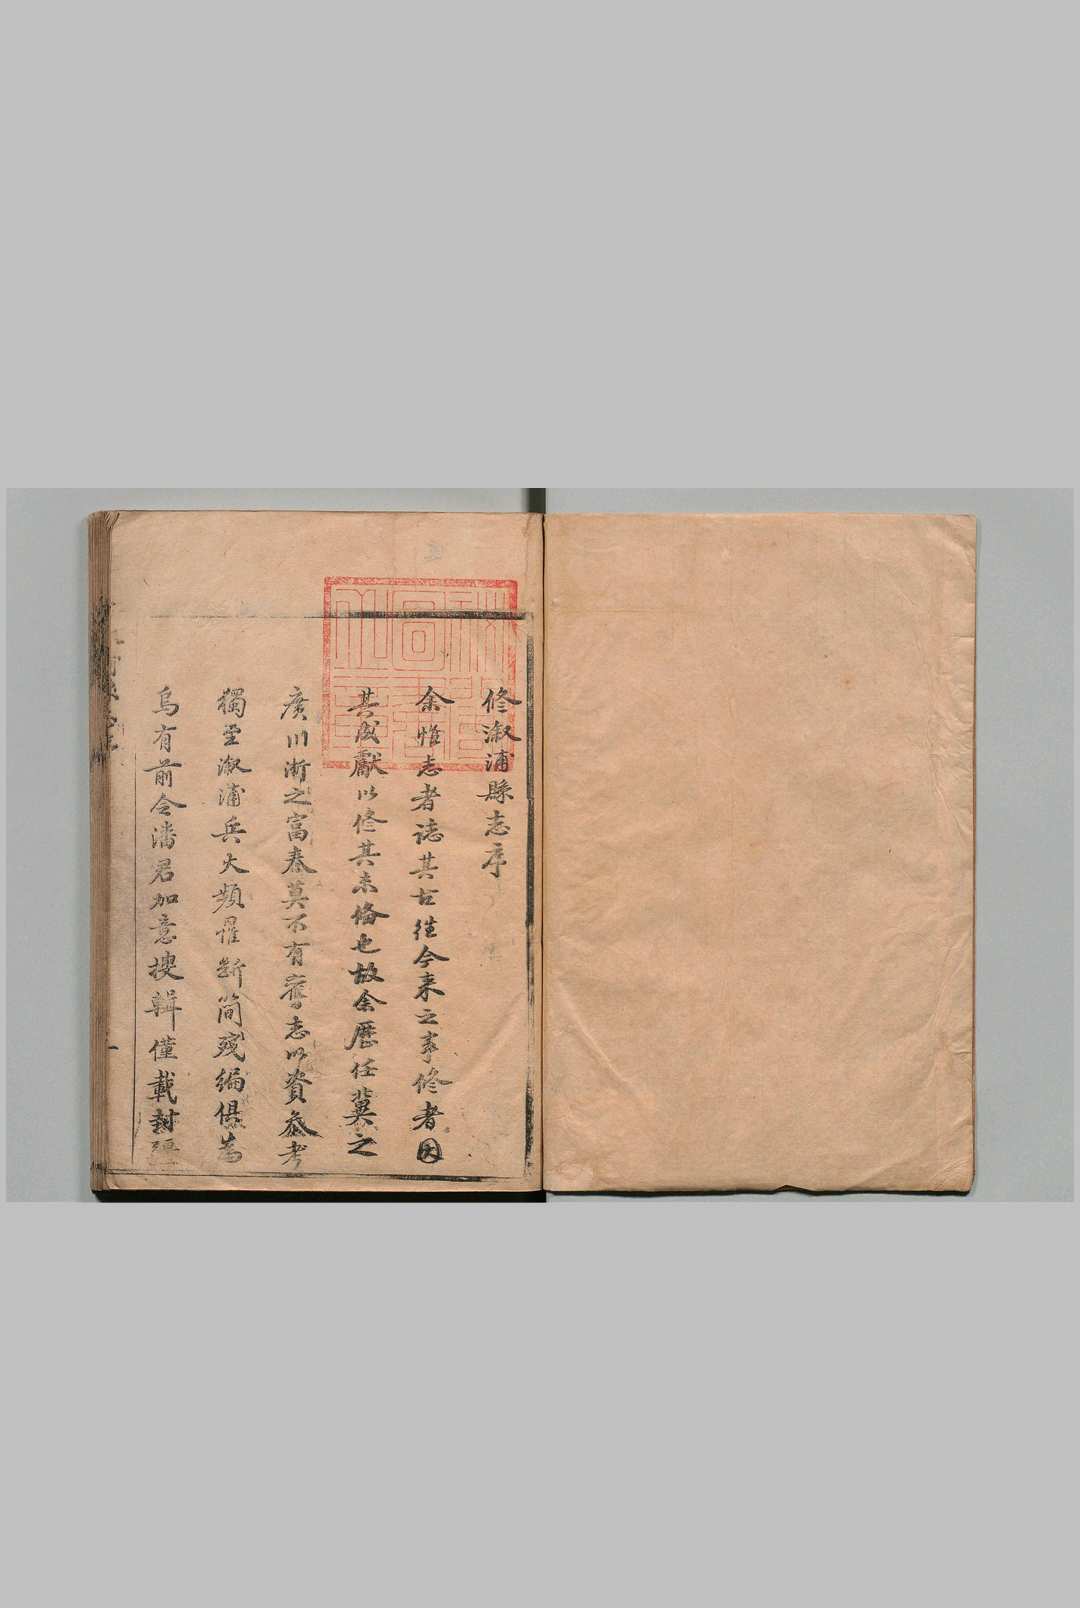 修漵浦縣志序
余惟志者誌其古往今来之事修者因
其成獻以修其未備也故余歷任冀之
廣川浙之富春莫不有舊志以資叅考
獨至漵浦兵火頻罹斷簡殘編俱為
烏有前令潘君加意搜輯僅載封疆